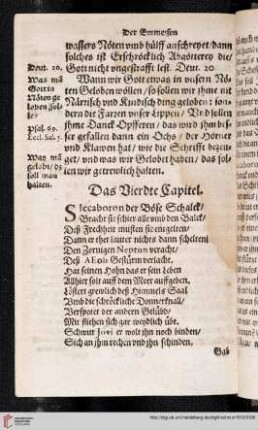 Der Emmeisen
wassers Nöten vmb hülff anschreyet dann
solches ist Erschröcklich Abgötterey die
Deut. 20. Gott nicht vngestrafft lest. Deut. 20
Was mā Wann wir Gott etwas in vnsern Nö-
Gott in ten Geloben wöllen / so sollen wir jhme nit
Nöten ge Närrisch vnd Kindisch ding geloben: son-
loben sol- dern die Farren vnser Lippen / Vnd sollen
le? jhme Danck-Opfferen / das wird jhm bes-
Psal. 69. ser gefallen dann ein Ochs / der Hörner
vnd Klawen hat / wie die Schrifft bezeu-
Was mā get / vnd was wir Gelobet haben / das sol-
soll man len wir getrewlich halten.
halten.
Das Vierdte Capitel.
der Böse Schalck /
Bracht sie schier alle vmb den Balck /
Deß Frechheit musten sie entgelten /
Dann er thet lauter nichts dann schelten
Den Zornigen Neptun veracht /
Deß AEoli Gestürm verlacht.
Hat seinen Hohn das er sein Leben
Allhier solt auff dem Meer auffgeben.
Löstert grewlich deß Himmels Saal
Vnd die schröckliche Donnerknall /
Verspotet der andern Gelübd /
Mit fliehen sich gar weydlich übt.
Schwur Jovi er wolt jhn noch binden /
Sich an jhm rechen vnd jhn schinden.
Gab